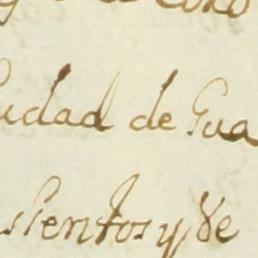 iudad de Gua
ssientos y Ve